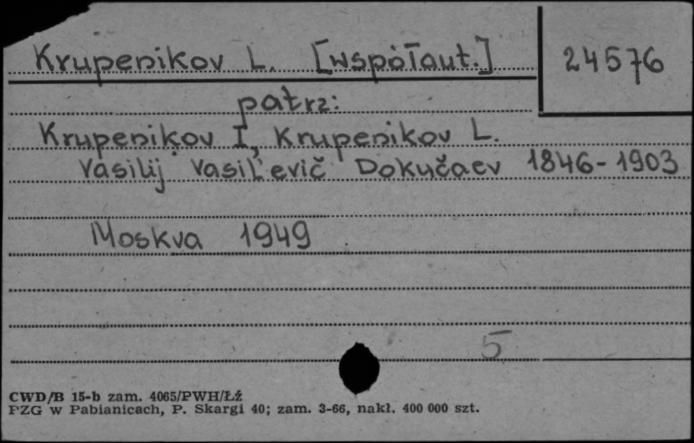 Krupenikov L. [współaut.] 24576
patrz:
Krupenikov I, Krupenikov L.
Vasilij Vasil'evič Dokučaev 1846-1903
Moskva 1949
5
CWD/B 15-b zam. 4065/PWH/Łź
PZG w Pabianicach, P. Skargi 40; zam. 3-66, nakł. 400 000 szt.